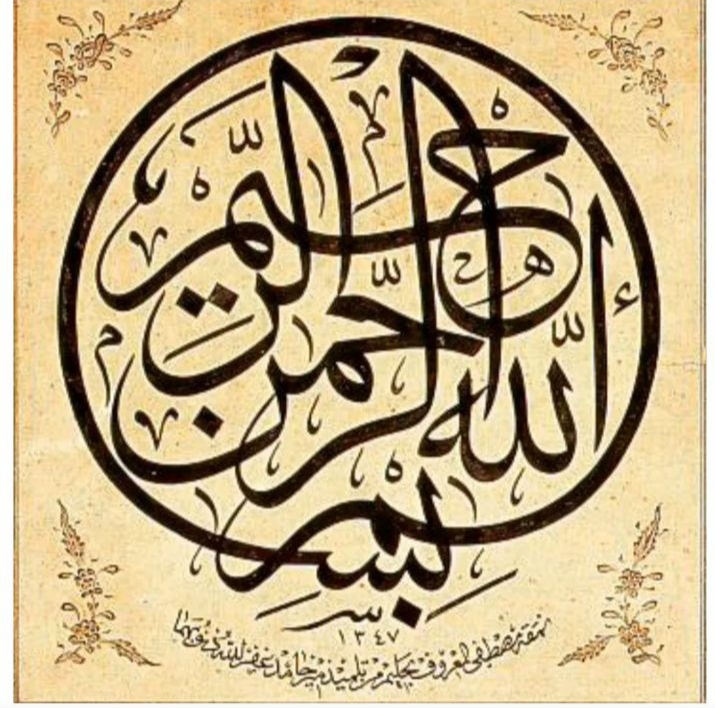 بسم الله الرحمن الرحيم
١٣٤٧
نمقه مصطفى المعروف بحليم من تلاميذ حامد غفر الله ذنوبهما